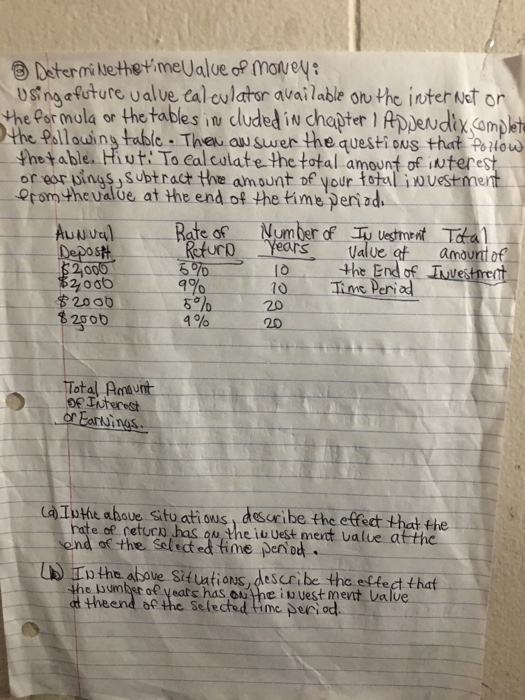 ③ Determine the time Value of money:
Using a future value calculator available on the internet or
the formula or the tables in cluded in chapter 1 Appendix, complete
the following table. Then answer the questions that follow
the table. Hint: To calculate the total amount of interest
or earnings, subtract the amount of your total investment
from the value at the end of the time period.
Annual Rate of Number of Investment Total
Deposit Return Years Value at amount of
$2,000 5% 10 the End of Investment
$2,000 9% 10 Time Period
$2000 5% 20
$2000 9% 20
Total Amount
of Interest
or Earnings.
(a) In the above situations, describe the effect that the
rate of return has on the investment value at the
end of the selected time period.
(b) In the above situations, describe the effect that
the number of years has on the investment value
at the end of the selected time period.